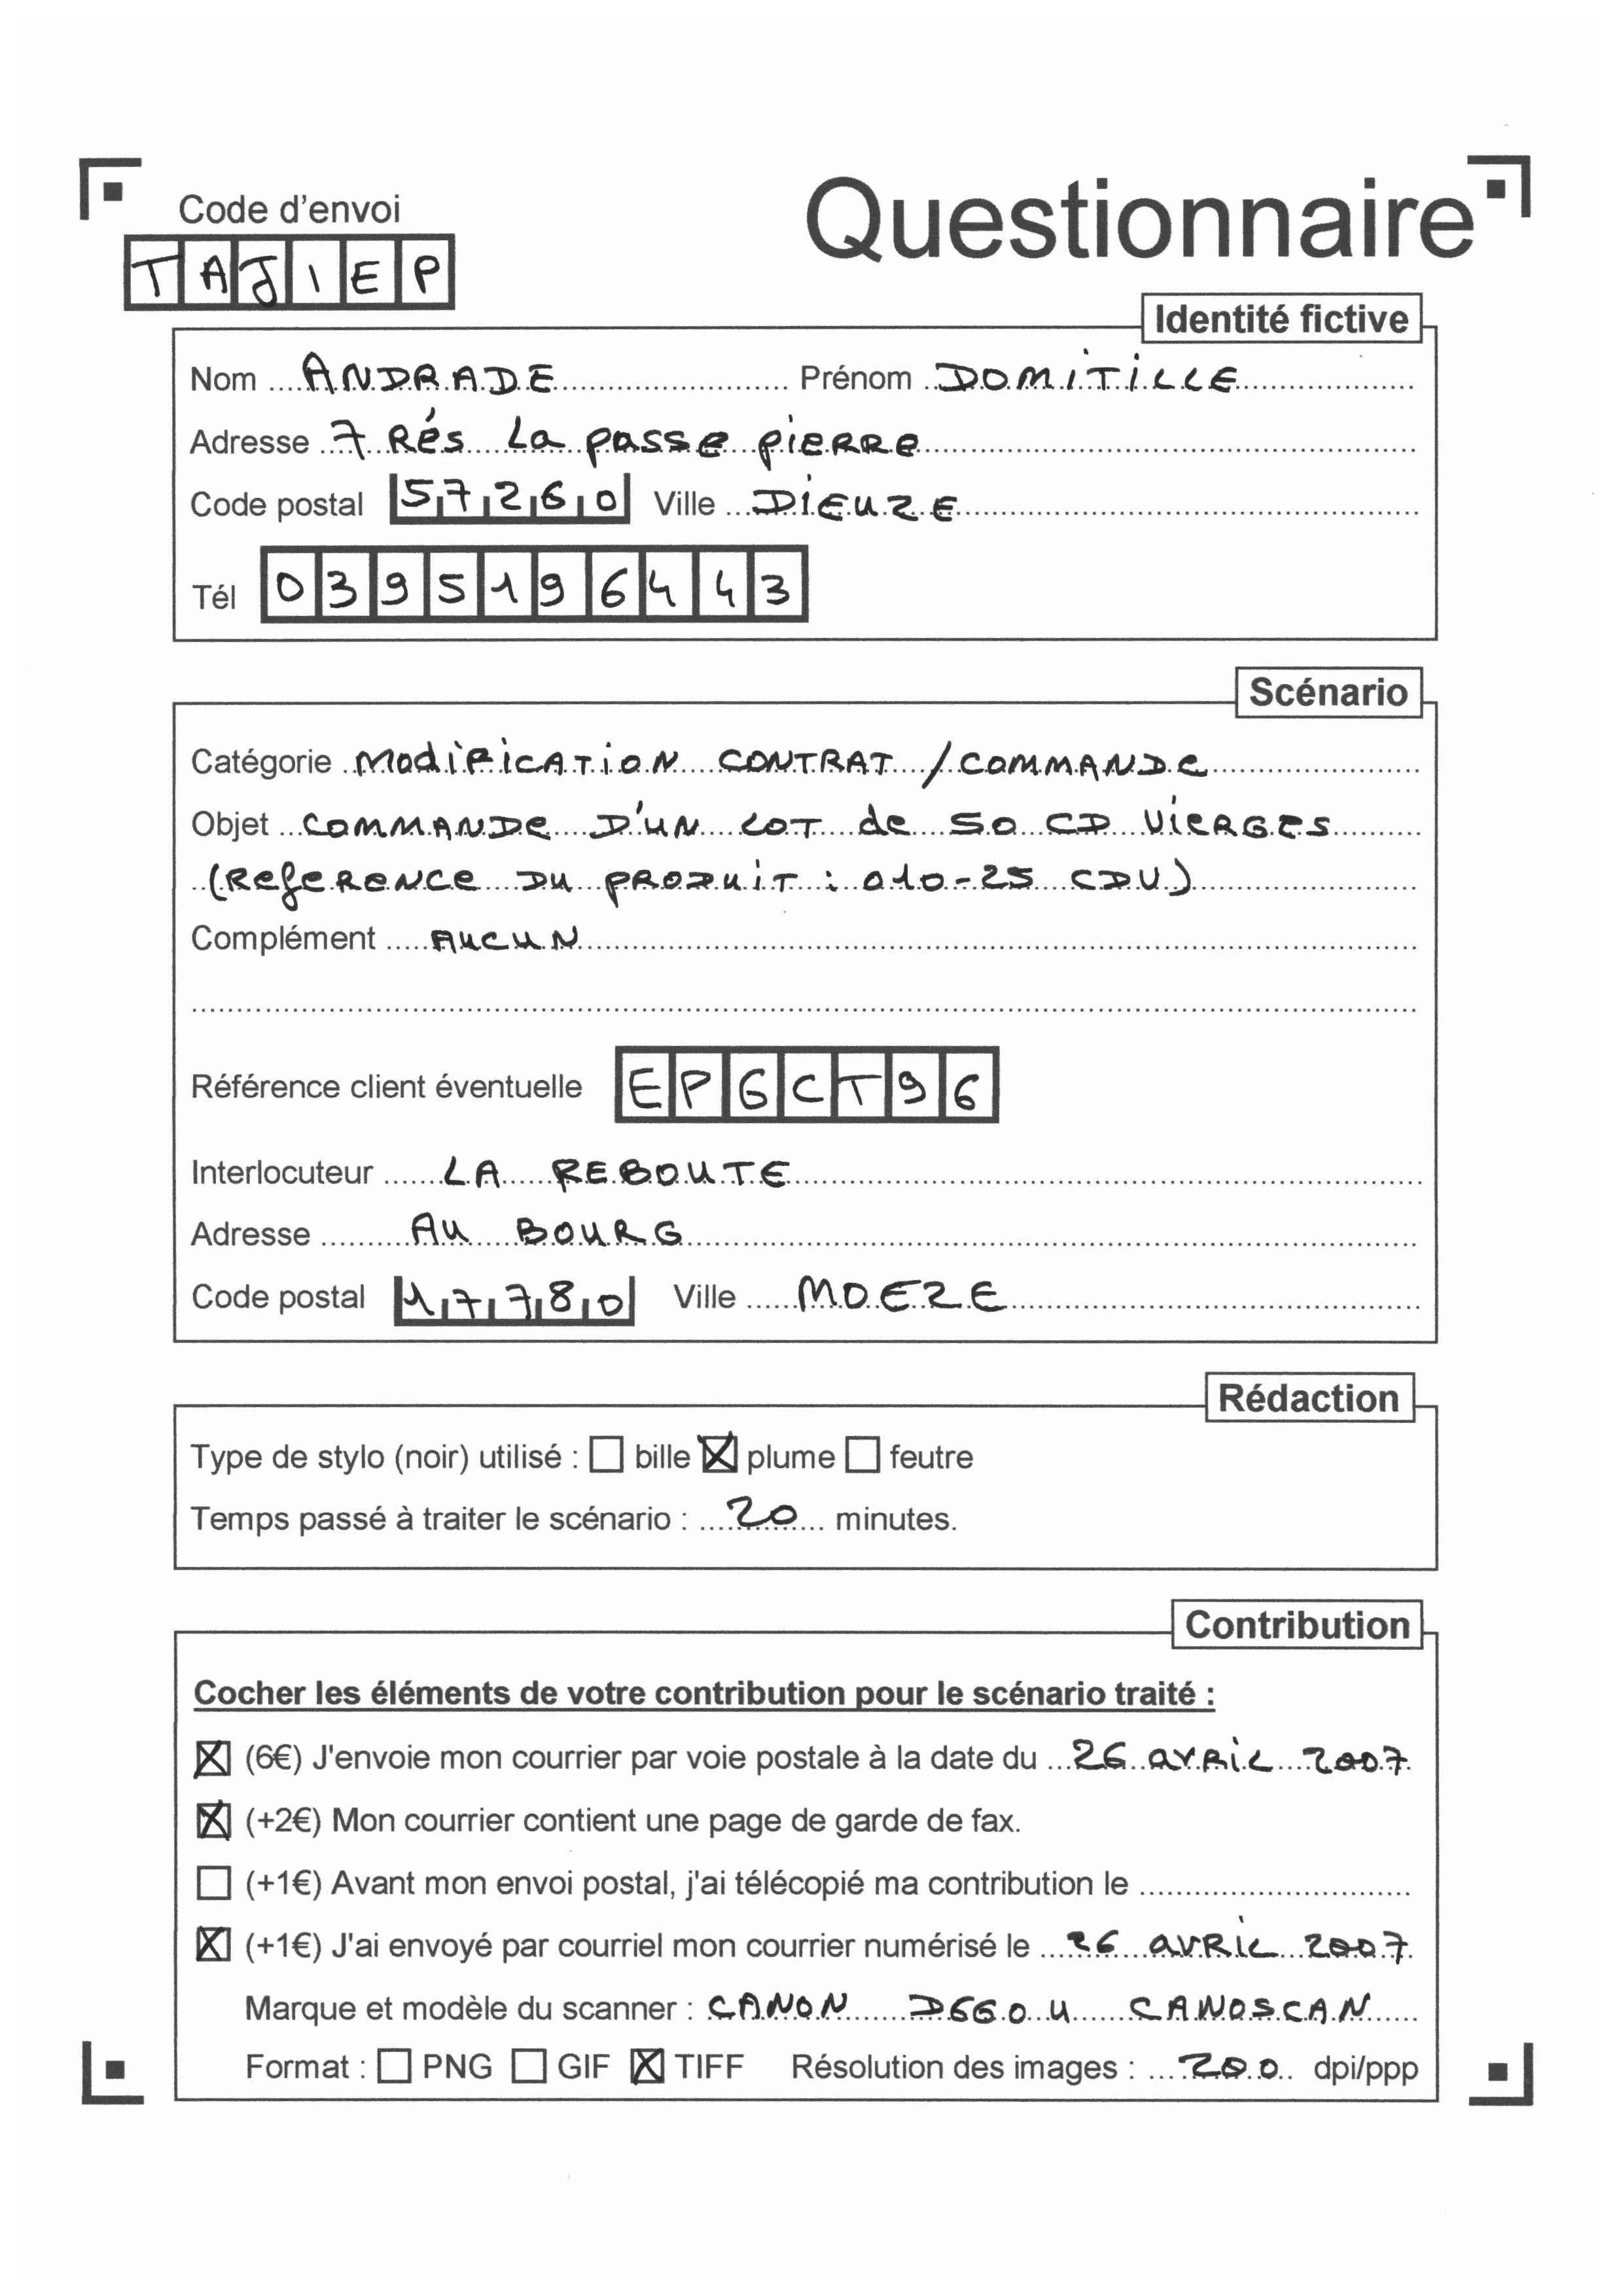 Code d'envoi
Questionnaire
TAJIEP
Identité fictive
Nom ANDRADE Prénom DOMITILLE
Adresse 7 Rés La passe pierre
Code postal 57260 Ville DIEUZE
Tél 0395196443
Scénario
Catégorie Modification CONTRAT / COMMANDE
Objet COMMANDE D'UN LOT de 50 CD VIERGES
(Reference DU PRODUIT : 010-25 CDU)
Complément AUCUN
Référence client éventuelle EPGCT96
Interlocuteur LA REBOUTE
Adresse AU BOURG
Code postal 17780 Ville MOEZE
Rédaction
Type de stylo (noir) utilisé : ☐ bille ☒ plume ☐ feutre
Temps passé à traiter le scénario : 20 minutes.
Contribution
Cocher les éléments de votre contribution pour le scénario traité :
☒ (6€) J'envoie mon courrier par voie postale à la date du 26 avril 2007
☒ (+2€) Mon courrier contient une page de garde de fax.
☐ (+1€) Avant mon envoi postal, j'ai télécopié ma contribution le
☒ (+1€) J'ai envoyé par courriel mon courrier numérisé le 26 avril 2007
Marque et modèle du scanner : CANON D660U CANOSCAN
Format : ☐ PNG ☐ GIF ☒ TIFF Résolution des images : 200 dpi/ppp